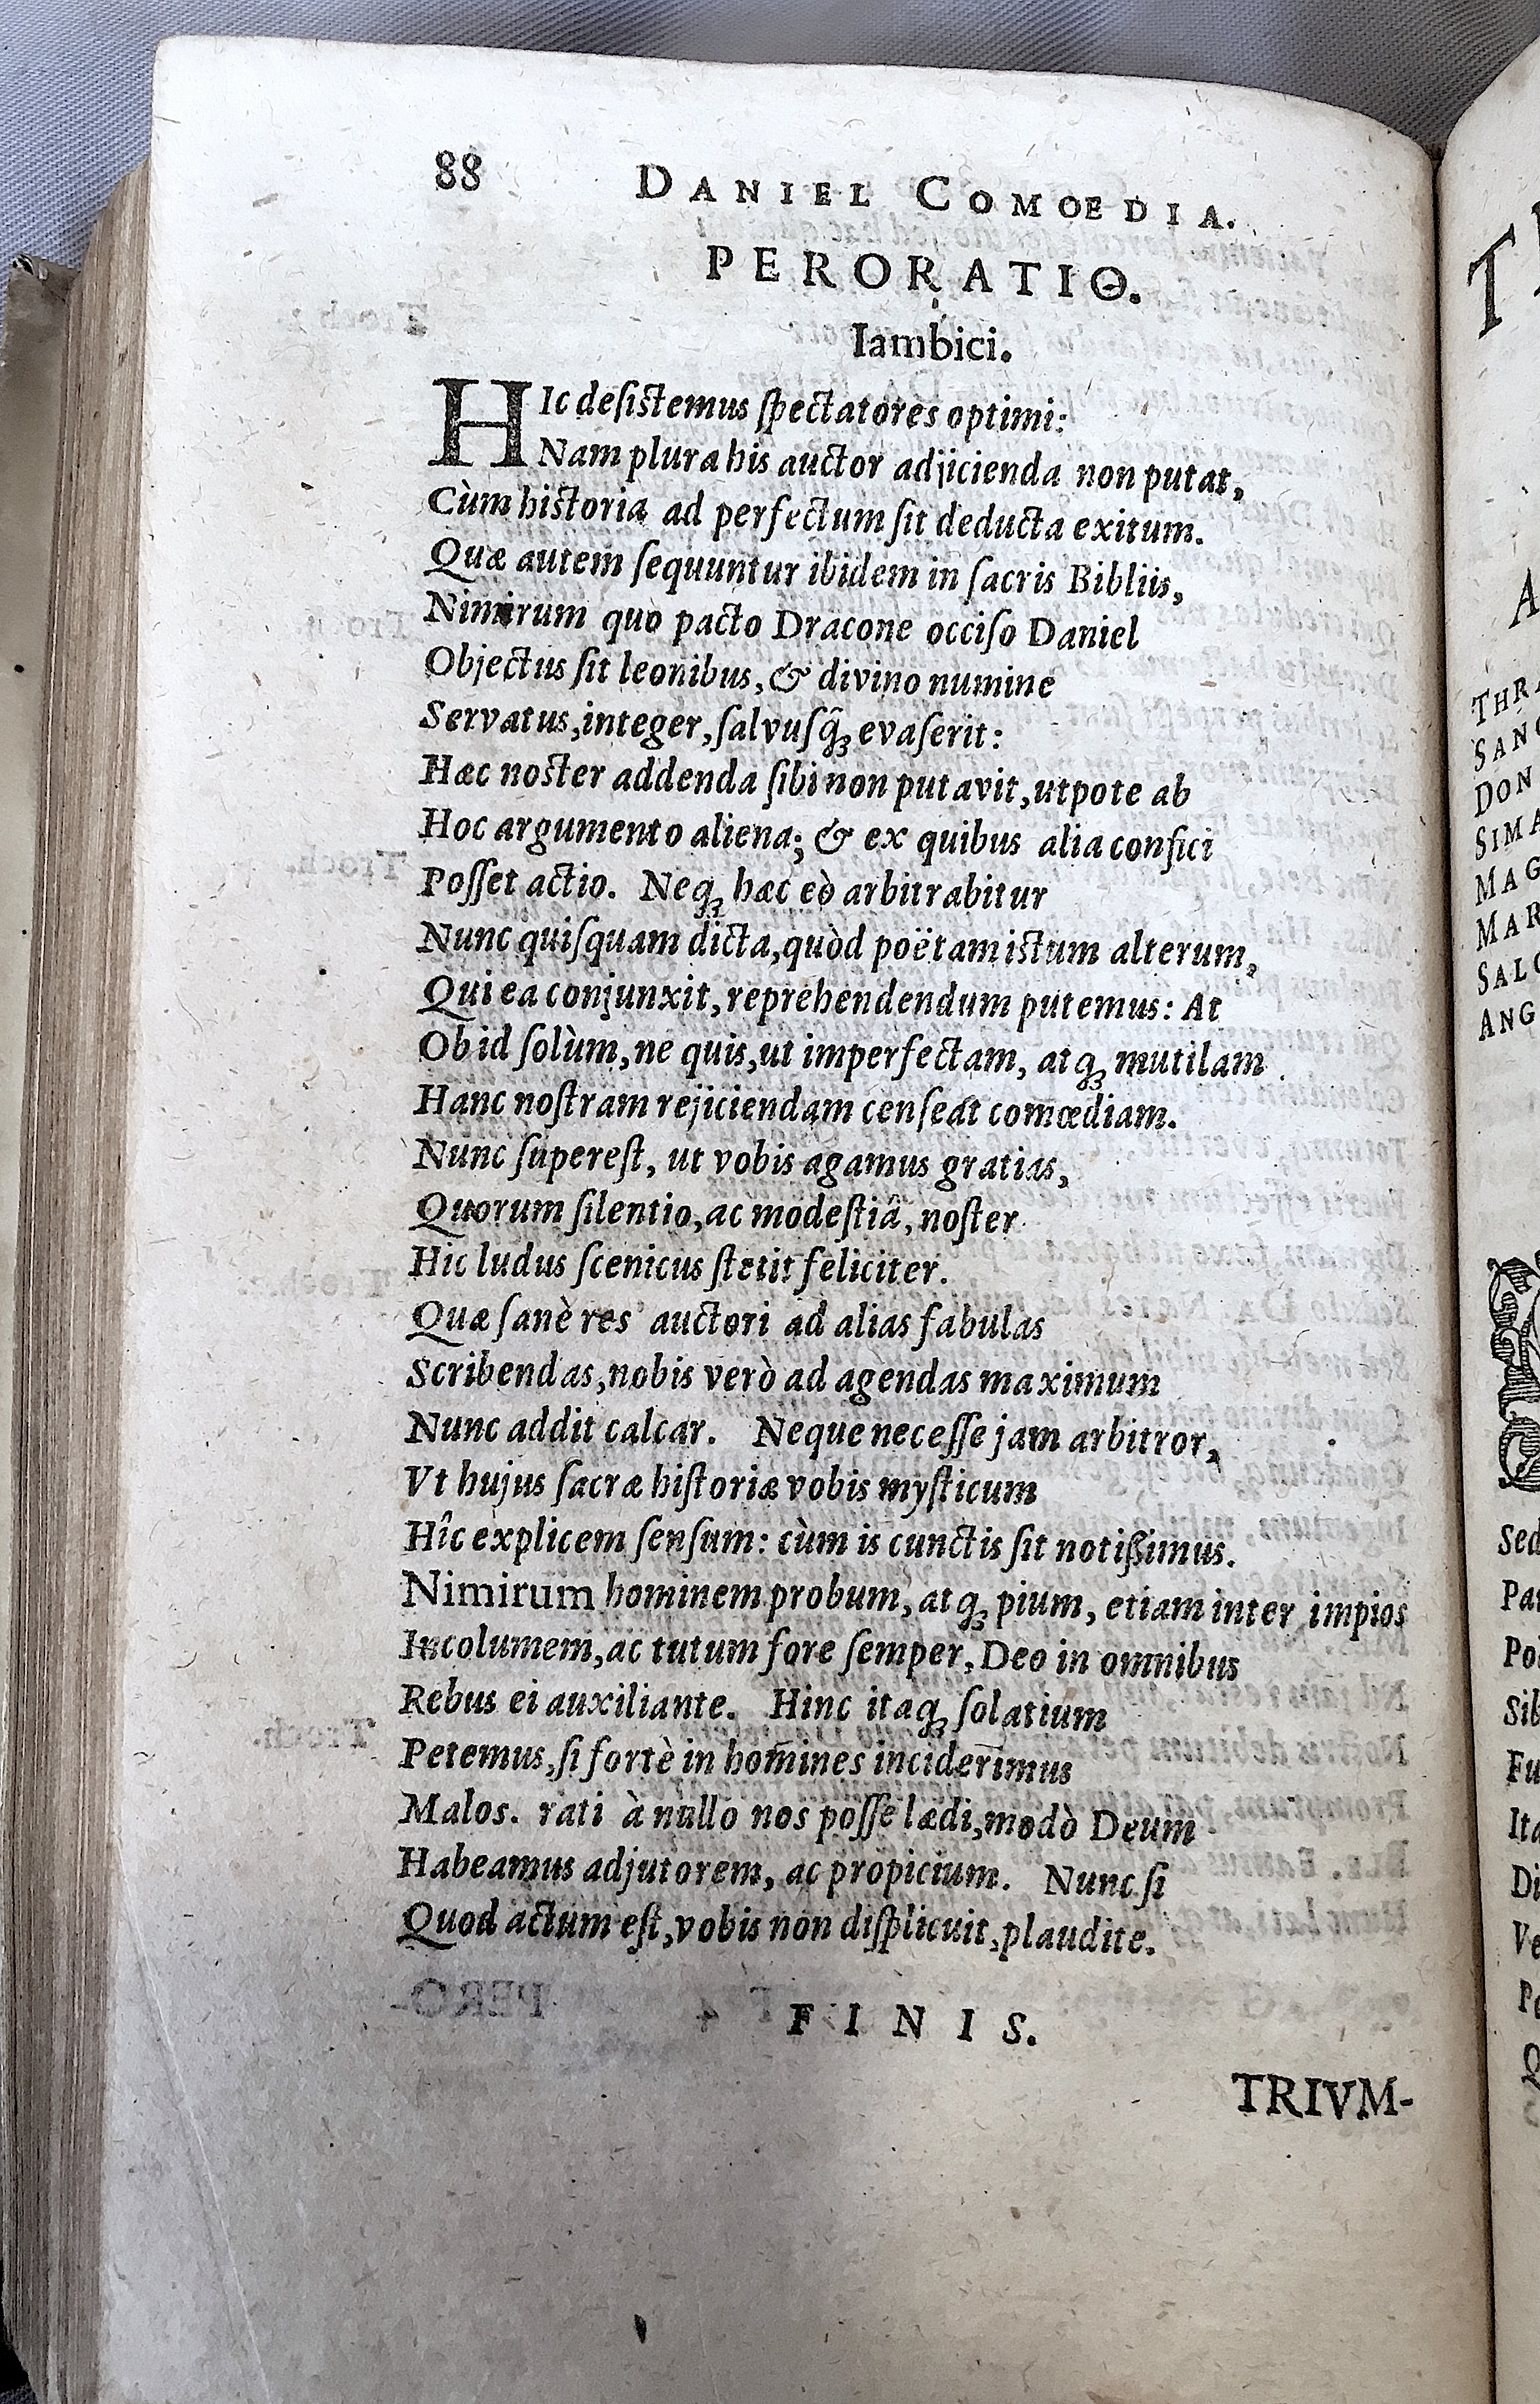 88 DANIEL COMŒDIA.
PERORATIO.
Iambici.
HIc deſiſtemus ſpectatores optimi:
Nam plura his auctor adjicienda non putat,
Cùm hiſtoria ad perfectum ſit deducta exitum.
Quæ autem ſequuntur ibidem in ſacris Bibliis,
Nimirum quo pacto Dracone occiſo Daniel
Objectus ſit leonibus, & divino numine
Servatus, integer, ſalvuſq́ꝫ evaſerit:
Hæc noſter addenda ſibi non putavit, utpote ab
Hoc argumento aliena; & ex quibus alia confici
Poſſet actio. Neqꝫ hæc eò arbitrabitur
Nunc quiſquam dicta, quòd poëtam iſtum alterum,
Qui ea conjunxit, reprehendendum putemus: At
Ob id ſolùm, ne quis, ut imperfectam, atqꝫ mutilam
Hanc noſtram rejiciendam cenſeat comœdiam.
Nunc ſupereſt, ut vobis agamus gratias,
Quorum ſilentio, ac modeſtiâ, noſter
Hic ludus ſcenicus ſtetit feliciter.
Quæ ſanè res auctori ad alias fabulas
Scribendas, nobis verò ad agendas maximum
Nunc addit calcar. Neque neceſſe jam arbitror,
Vt hujus ſacræ hiſtoriæ vobis myſticum
Hîc explicem ſenſum: cùm is cunctis ſit notißimus.
Nimirum hominem probum, atqꝫ pium, etiam inter impios
Incolumem, ac tutum fore ſemper, Deo in omnibus
Rebus ei auxiliante. Hinc itaqꝫ ſolatium
Petemus, ſi fortè in homines inciderimus
Malos. rati à nullo nos poſſe lædi, modò Deum
Habeamus adjutorem, ac propicium. Nunc ſi
Quod actum eſt, vobis non diſplicuit, plaudite.
FINIS.
TRIVM-